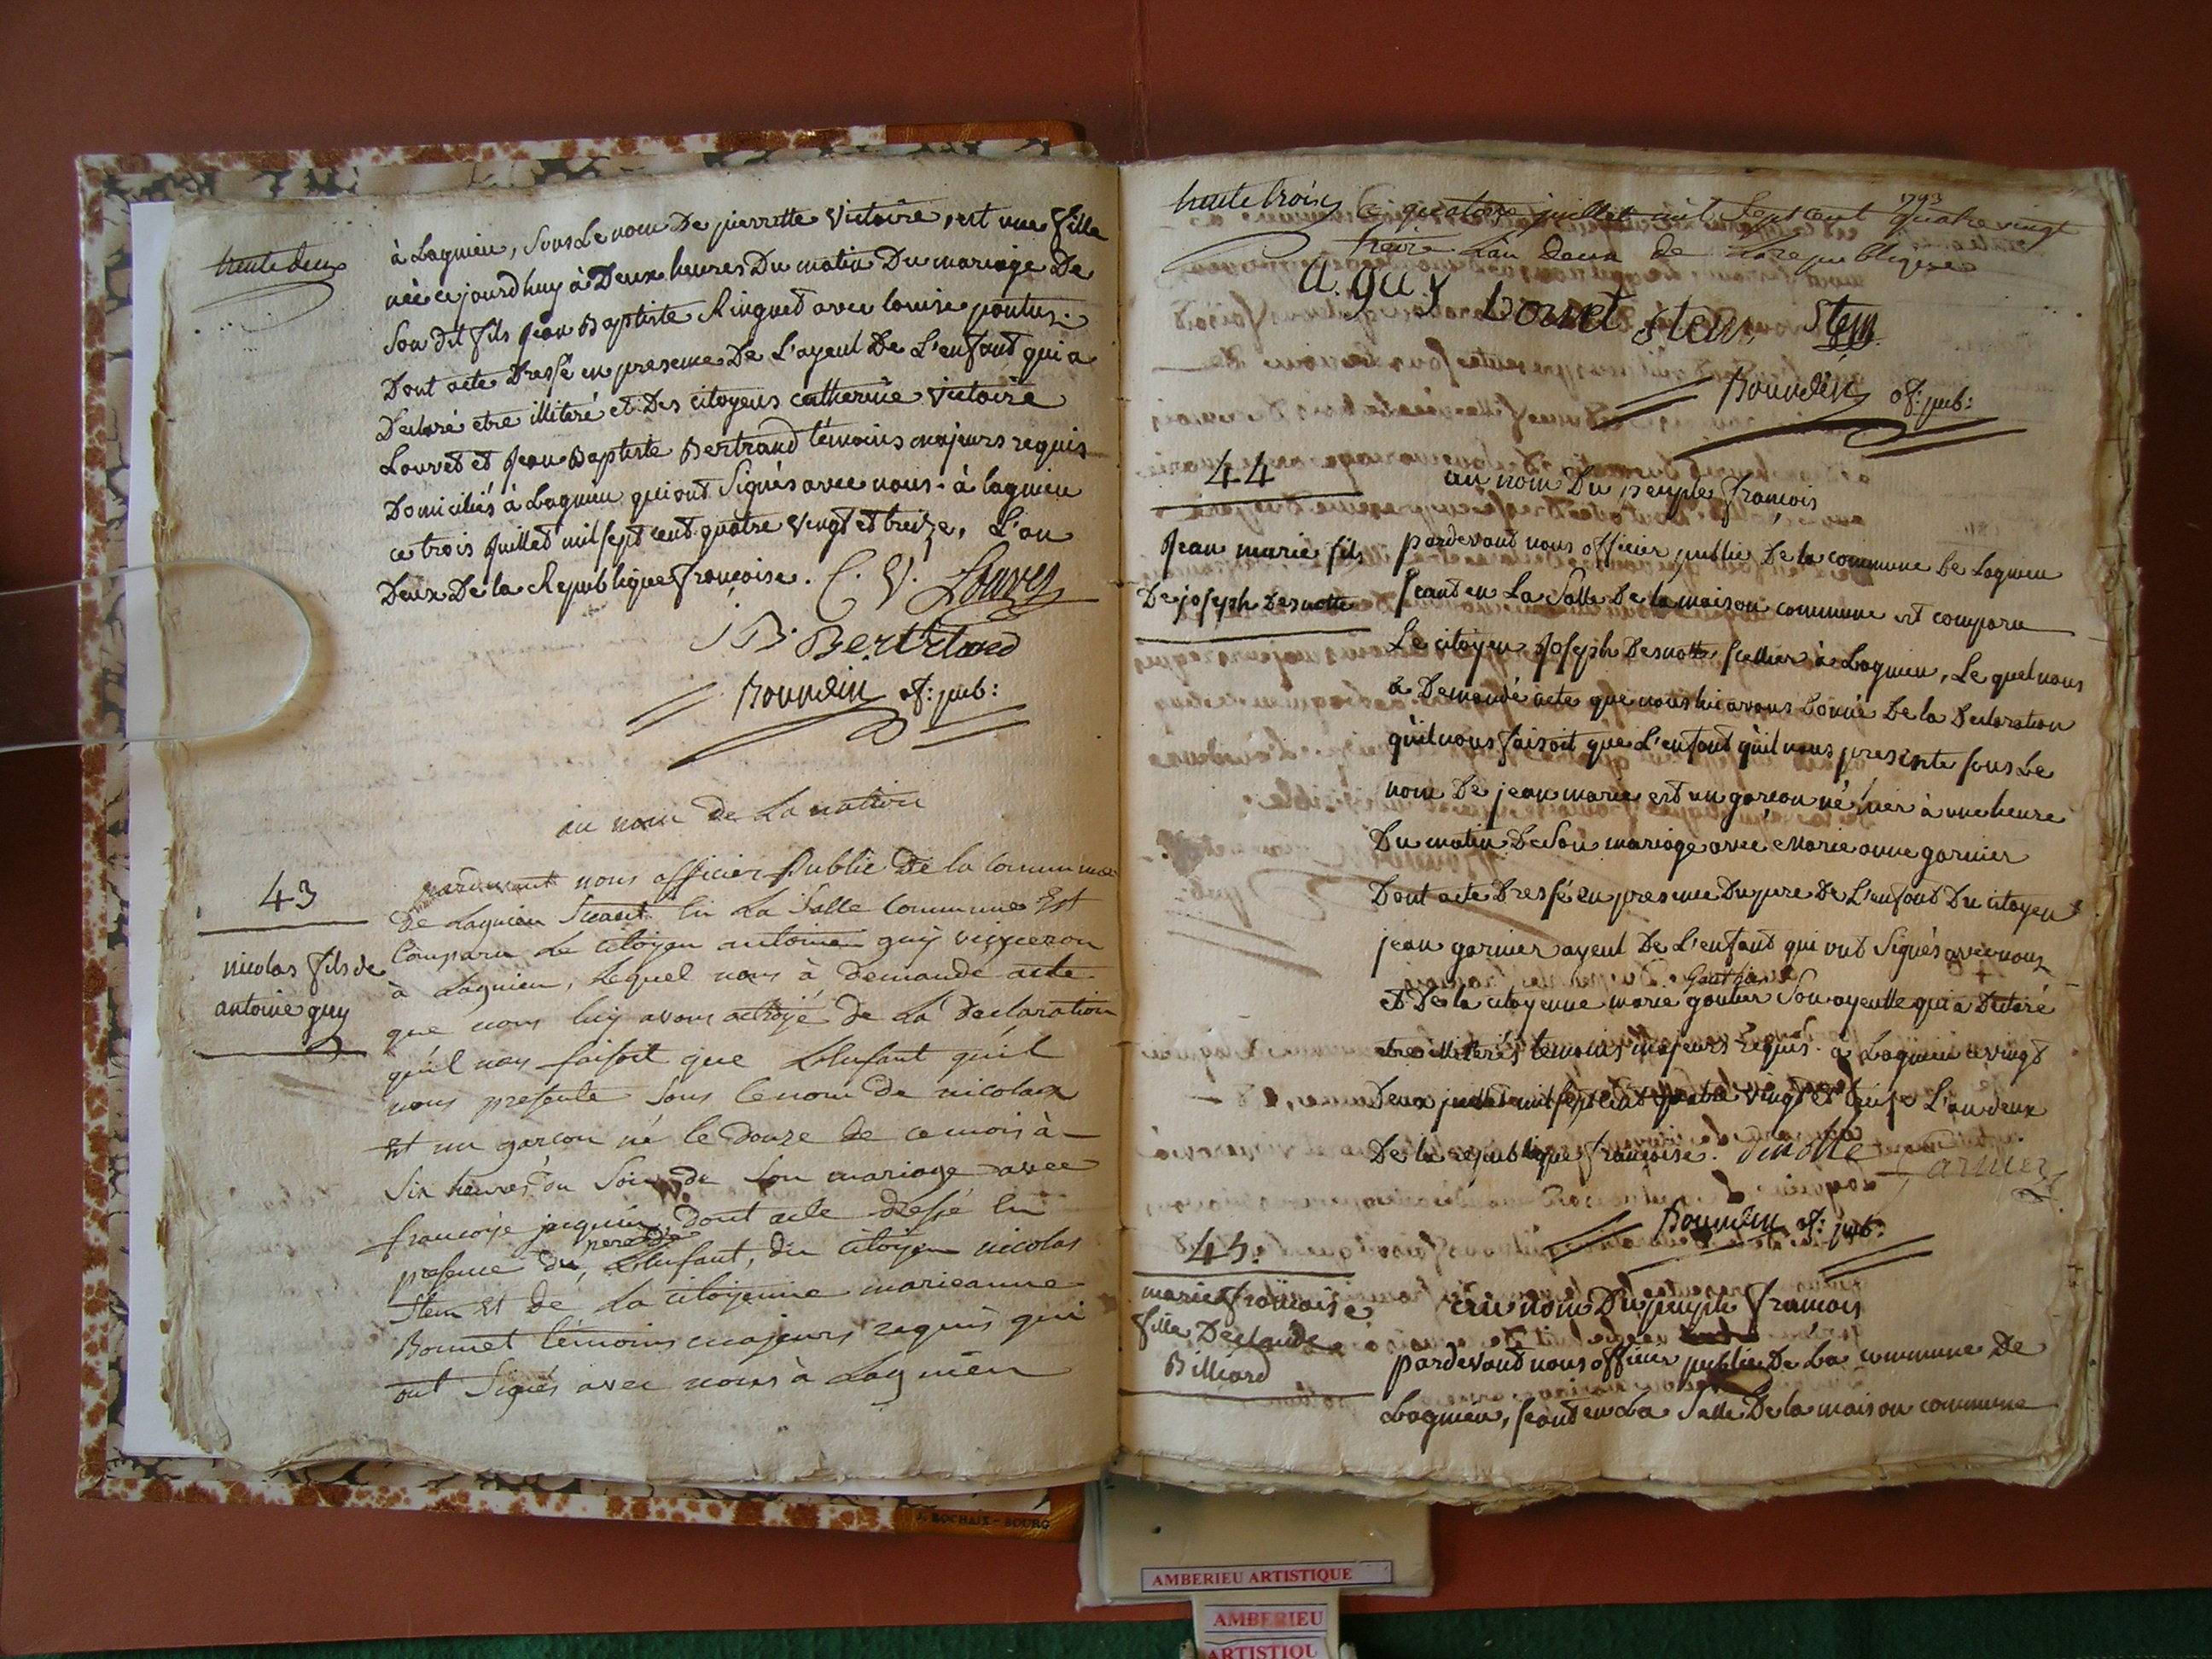 trente deux
à Lagnieu, Sous Le nom De pierrette Victoire, est une fille
née ce jourd'huy à Deux heures Du matin Du mariage De
Son dit fils Jean Baptiste Ringued avec louise pontus.
Dont acte Dressé en presence De L'ayeul De L'enfant qui a
Declaré etre illiteré et Des citoyens catherine Victoire
Louvet et Jean Baptiste Bertrand témoins majeurs requis
Domiciliés à Lagnieu qui ont Signés avec nous. à lagnieu
ce trois Juillet mil sept cent quatre vingt et treize, L'an
Deux De la Republique françoise. C. V. Louvet
J B. Bertrand
Bourdin of: pub:
au nom de La nation
43
nicolas fils de
antoine guy
pardevant nous officier Public de la Commune
de Lagnieu Sceant En La Salle Commune Est
Comparu Le citoyen antoine guÿ vigneron
à Lagnieu, Lequel nous à demande acte
que nous luy avons octroÿé de La declaration
qu'il nous faisoit que L'enfant qu'il
nous presente Sous le nom de nicolas
Est un garcon né le douze de ce mois à
Six heures du Soir, de Son mariage avec
francoise jaquin, dont acte dressé En
presence du pere de L'enfant, du citoyen nicolas
Stem Et de La citoyenne marieanne
Bonnet témoins majeurs requis qui
ont Signés avec nous à Lagnieu
J. ROCHAIX - BOURG
trente trois Ce quatorze juillet mil Sept cent quatre vingt
1793
treize L'an deux de La republique
a. guy bonnet stem Stem
Bourdin of: pub:
44
au nom Du peuple françois
Jean marie fils
De joseph Desnotte
pardevant nous officier public De la commune De Lagnieu
seant en La Salle De la maison commune est comparu
Le citoyen Joseph Desnotte, sellier à Lagnieu, Le quel nous
a Demandé acte que nous lui avons Donné De la Declaration
qu'il nous faisoit que L'enfant qu'il nous presente sous Le
nom De jean marie est un garcon né hier à une heure
Du matin De Son mariage avec Marie anne garnier
Dont acte Dressé en presence Du pere De L'enfant Du citoyen
jean garnier ayeul De L'enfant qui ont Signés avec nous
et De la citoyenne marie goutier Son ayeulle qui a Declaré
etre illiterés temoins majeurs requis. à Lagnieu ce vingt
Deux juillet mil sept cent quatre vingt et treise L'an deux
De la republique françoise. Dinotte Garnier
Bourdin of: pub:
45.
marie françoise
fille De claude
Billiard
au nom Du peuple francois
pardevant nous officier public De La commune De
Lagnieu, seant en La Salle De la maison commune
AMBERIEU ARTISTIQUE
AMBERIEU
ARTISTIQU